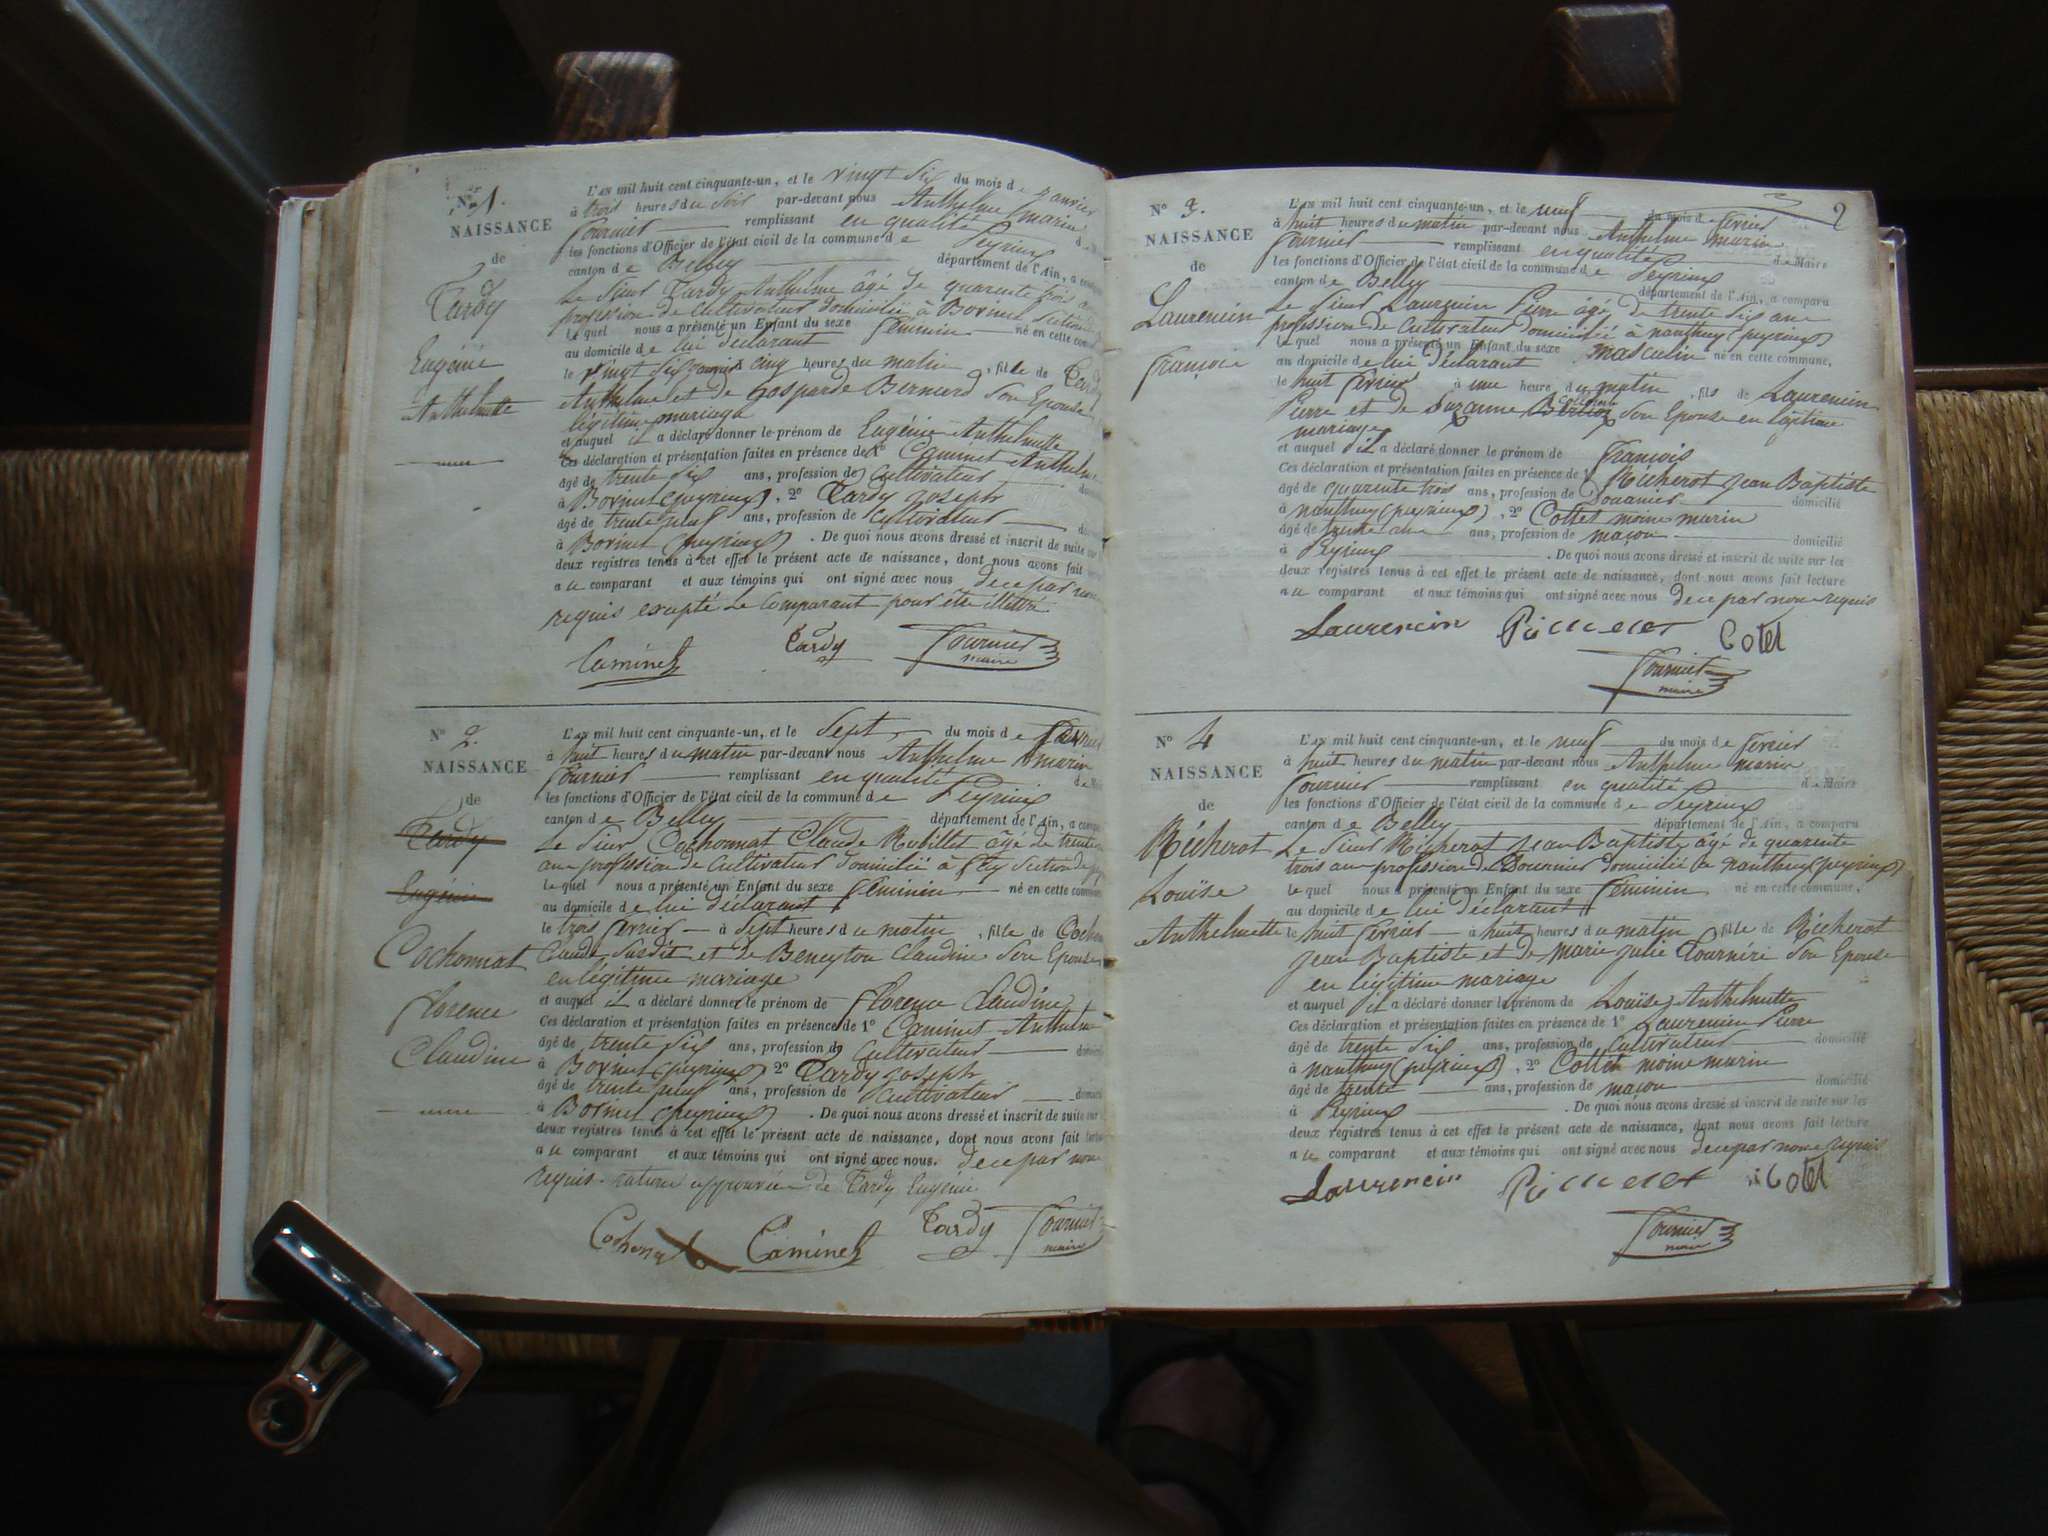 N° 1.
NAISSANCE
de
Tardy
Eugénie
Anthelmette
L'AN mil huit cent cinquante-un, et le vingt six du mois de janvier
à trois heures du soir par-devant nous Anthelme marin
fournier remplissant en qualité d
les fonctions d'Officier de l'état civil de la commune de Peyrieux
canton de Belley département de l'Ain, a
Le Sieur Tardy Anthelme âgé de quarente trois
profession de Cultivateur domicilié à Borinet Section
le quel nous a présenté un Enfant du sexe féminin né en cette
au domicile de lui déclarant
le vingt six janvier à cinq heures du matin, fille de
Anthelme et de gasparde Bernard Son Epouse
légitime mariage
et auquel il a déclaré donner le prénom de Eugénie Anthelmette
Ces déclaration et présentation faites en présence de 1° Caminet Anthelme
âgé de trente Six ans, profession de Cultivateur
à Borinet (peyrieux), 2° Tardy joseph
âgé de trente neuf ans, profession de Cultivateur
à Borinet (peyrieux). De quoi nous avons dressé et inscrit de suite sur
deux registres tenus à cet effet le présent acte de naissance, dont nous avons fait
au comparant et aux témoins qui ont signé avec nous de ce par nous
requis excepté Le Comparant pour être illettré
Caminet Tardy Fournier
maire
N° 2.
NAISSANCE
de
Tardy
Eugénie
Cochonnat
florence
Claudine
L'AN mil huit cent cinquante-un, et le Sept du mois de février
à huit heures du matin par-devant nous Anthelme marin
fournier remplissant en qualité
les fonctions d'Officier de l'état civil de la commune de Peyrieux
canton de Belley département de l'Ain, a
Le Sieur Cochonnat Claude Robillet âgé de trente
ans profession de Cultivateur domicilié à Section de
le quel nous a présenté un Enfant du sexe féminin né en cette commune
au domicile de lui déclarant
le trois fevrier à Sept heures du matin, fille de
Claude Susdit et de Beneyton Claudine Son Epouse
en légitime mariage
et auquel il a déclaré donner le prénom de florence Claudine
Ces déclaration et présentation faites en présence de 1° Caminet Anthelme
âgé de trente Six ans, profession de Cultivateur
à Borinet (peyrieux) 2° Tardy joseph
âgé de trente neuf ans, profession de Cultivateur
à Borinet (peyrieux). De quoi nous avons dressé et inscrit de suite sur
deux registres tenus à cet effet le présent acte de naissance, dont nous avons fait
au comparant et aux témoins qui ont signé avec nous. de ce par nous
requis. rature approuvée de Tardy Eugénie
Cochonat Caminet Tardy Fournier
maire
2
N° 3.
NAISSANCE
de
Laurencin
françois
L'AN mil huit cent cinquante-un, et le neuf du mois de fevrier
à huit heures du matin par-devant nous Anthelme marin
fournier remplissant en qualité de Maire
les fonctions d'Officier de l'état civil de la commune de Peyrieux
canton de Belley département de l'Ain, a comparu
Le Sieur Laurencin Pierre âgé de trente Six ans
profession de Cultivateur domicilié à nanthuy (peyrieux)
le quel nous a présenté un Enfant du sexe masculin né en cette commune,
au domicile de lui déclarant
le huit fevrier à une heure du matin, fils de Laurencin
Pierre et de Suzanne Son Epouse en légitime
mariage
et auquel il a déclaré donner le prénom de François
Ces déclaration et présentation faites en présence de 1° Richerot Jean Baptiste
âgé de quarente trois ans, profession de Douanier domicilié
à nanthuy (peyrieux), 2° Cottet moine marin
âgé de trente ans ans, profession de maçon domicilié
à Peyrieux. De quoi nous avons dressé et inscrit de suite sur les
deux registres tenus à cet effet le présent acte de naissance, dont nous avons fait lecture
au comparant et aux témoins qui ont signé avec nous de ce par nous requis
Laurencin Richerot Cotet
Fournier
maire
N° 4
NAISSANCE
de
Richerot
Louïse
Anthelmette
L'AN mil huit cent cinquante-un, et le neuf du mois de fevrier
à huit heures du matin par-devant nous Anthelme marin
fournier remplissant en qualité de Maire
les fonctions d'Officier de l'état civil de la commune de Peyrieux
canton de Belley département de l'Ain, a comparu
Le Sieur Richerot Jean Baptiste âgé de quarente
trois ans profession de Douanier domicilié à nanthuy (peyrieux)
le quel nous a présenté un Enfant du sexe féminin né en cette commune,
au domicile de lui déclarant
le huit fevrier à huit heures du matin, fille de Richerot
Jean Baptiste et de marie julie Son Epouse
en légitime mariage
et auquel il a déclaré donner le prénom de Louïse Anthelmette
Ces déclaration et présentation faites en présence de 1° Laurencin Pierre
âgé de trente Six ans, profession de Cultivateur domicilié
à nanthuy (peyrieux), 2° Cottet moine marin
âgé de trente ans, profession de maçon domicilié
à Peyrieux. De quoi nous avons dressé et inscrit de suite sur les
deux registres tenus à cet effet le présent acte de naissance, dont nous avons fait lecture
au comparant et aux témoins qui ont signé avec nous de ce par nous requis
Laurencin Richerot Cotet
Fournier
maire